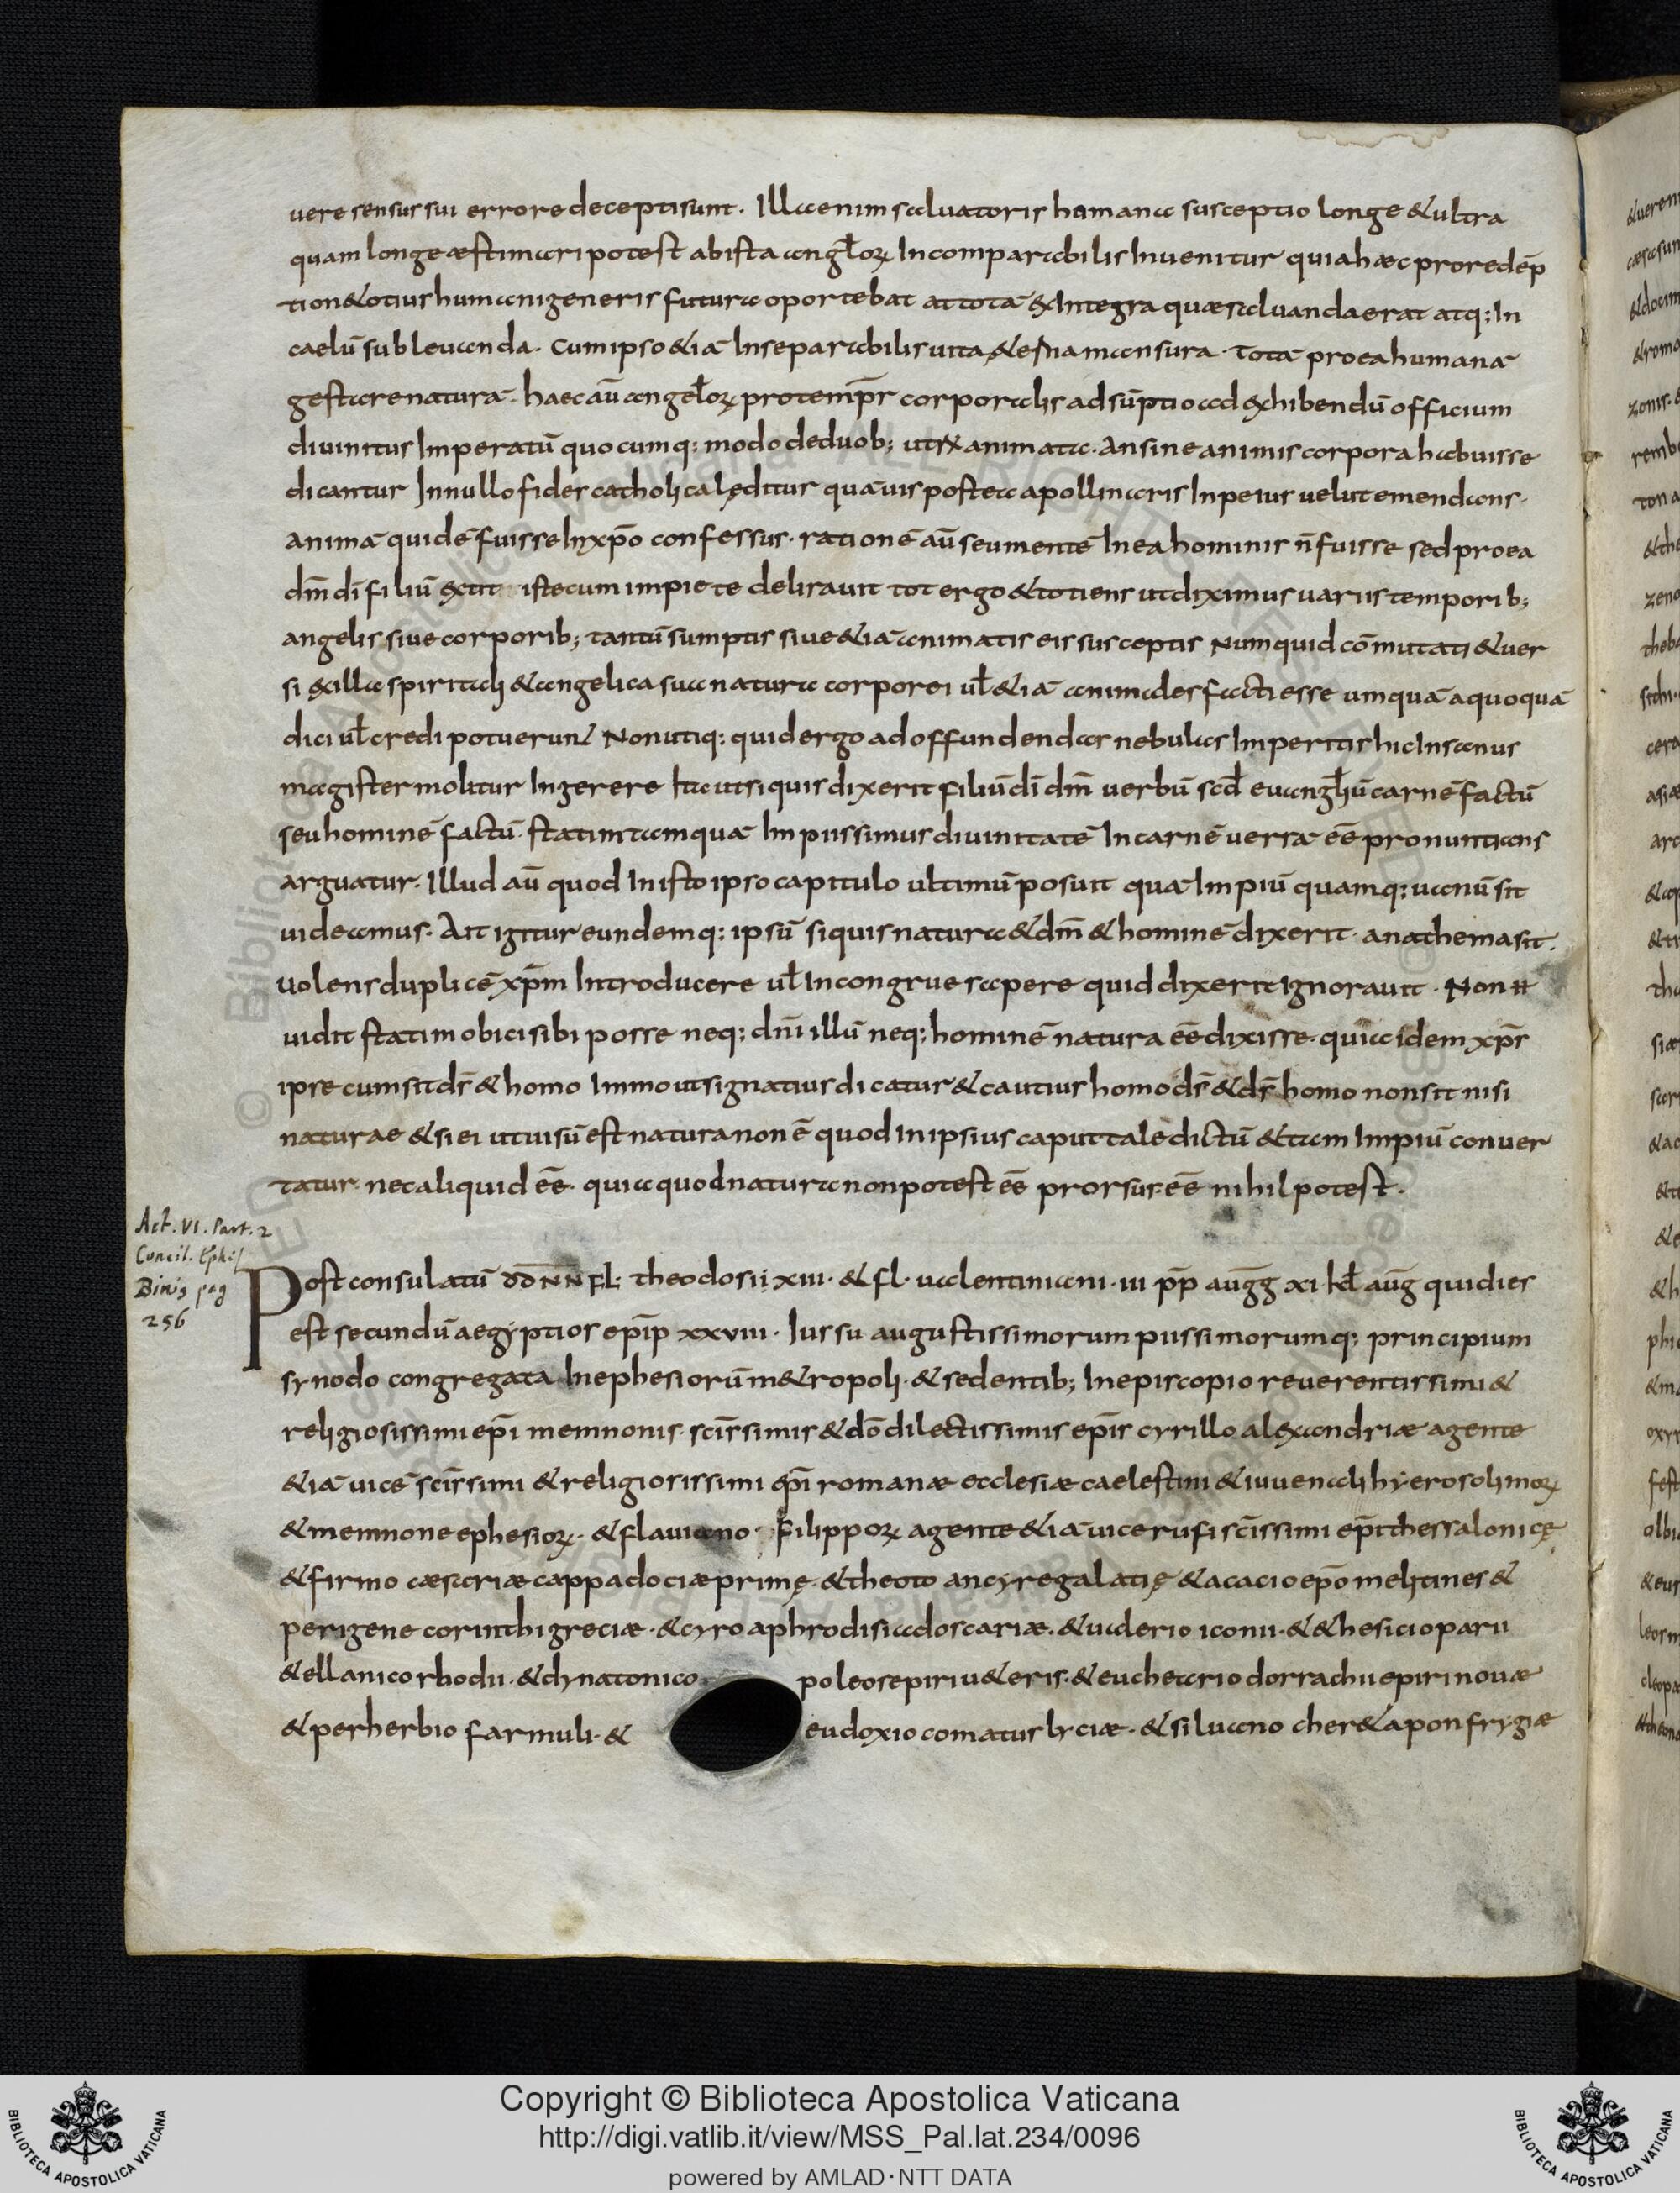 uere sensus sui errore decepti sunt. Illa enim saluatoris humana susceptio longe & ultra
quam longe æstimari potest ab ista angl̄oꝝ Incomparabilis Inuenitur quia hæc pro redēp
tione totius humani generis futura oportebat at totā ex Integra quæ saluanda erat atq; In
caelū subleuanda. Cum ipso &iā Inseparabilis uita, &erna mansura. Totā pro ea humanā
gestare naturā. haec aū angel̄oꝝ pro temp̄r corporalis adsūptio ad exhibendū officium
diuinitus Imperatū quocumq; modo de duob; utrx animata. An sine animis corpora habuisse
dicantur In nullo fides catholica lęditur quāuis postea apollinaris In peius uelut emendans.
animā quidē fuisse In xp̄o confessus. rationē aū seu mentē In ea hominis n̄ fuisse sed pro ea
dm̄ dī filiū extit iste cum impiete delirauit tot ergo & totiens ut diximus uariis temporib;
angelis siue corporib; tantū sumptis siue &iā animatis eis susceptis Numquid cōmutati & uer
si ex illa spiritali & angelica sua natura corporei ul̄ &iā animales facti esse umquā a quoquā
dici ul̄ credi potuerunt Non utiq; quid ergo ad offundendas nebulas Imperitis hic Insanus
magister molitur Ingerere Ita ut si quis dixerit filiū dī dm̄ uerbū scd̄ euangl̄iū carnē factū
seu hominē factū. statim tamquā Impiissimus diuinitatē In carnē uersā eē pronuntians
arguatur. Illud aū quod In isto ipso capitulo ultimū posuit quā Impiū quamq; uanū sit
uideamus. Ait igitur eundemq; ipsū si quis natura & dm̄ & hominē dixerit anathema sit.
Uolens duplicē xp̄m Introducere ul̄ Incongrue sapere quid dixerit Ignorauit. Non
uidit statim obici sibi posse neq; dm̄ illū neq; hominē natura eē dixisse. quia idem xp̄s
ipse cum sit ds̄ & homo Immo ut signatius dicatur & cautius homo ds̄ & ds̄ homo non sit nisi
naturae & si ei ut uisū est natura non ē quod In ipsius caput tale dictū & tam Impiū conuer
tatur. nec aliquid eē. quia quod natura non potest eē prorsus eē nihil potest.
Act. VI. Part. 2
Concil. Ephes
Binis pag
256
Post consulatū DD NN FL. theodosii xiii. & fl. ualentiniani. iii pp̄ augḡ xi kl̄ auḡ qui dies
est secundū aegyptios epip̄ xxviii. Iussu augustissimorum piissimorumq; principium
synodo congregata In ephesiorū m&ropoli. & sedentib; In episcopio reuerentissimi &
religiosissimi ep̄i memnonis. sc̄issimis & dō dilectissimis ep̄is cyrillo alexandriæ agente
&iā uicē sc̄issimi & religiosissimi ep̄i romanæ ecclesiæ caelestini & iuuenali hyerosolimoꝝ
& memnone ephesioꝝ. & flauiano. Filippoꝝ agente &iā uice rufi sc̄issimi ep̄i thessalonicę
& firmo cæsariæ cappadociæ primę. & theoto ancyre galatię & acacio ep̄o melitines &
perigene corinthi greciæ. & cyro aphrodisiados cariæ. & ualerio iconii. & & hesicio parii
& ellanico rhodii. & dynato nico poleos epiri u&eris. & eucheario dorrachii epiri nouæ
& perherbio farmuli. & eudoxio comatus lyciæ. & siluano cher&apon frygiæ
Copyright © Biblioteca Apostolica Vaticana
http://digi.vatlib.it/view/MSS_Pal.lat.234/0096
powered by AMLAD·NTT DATA